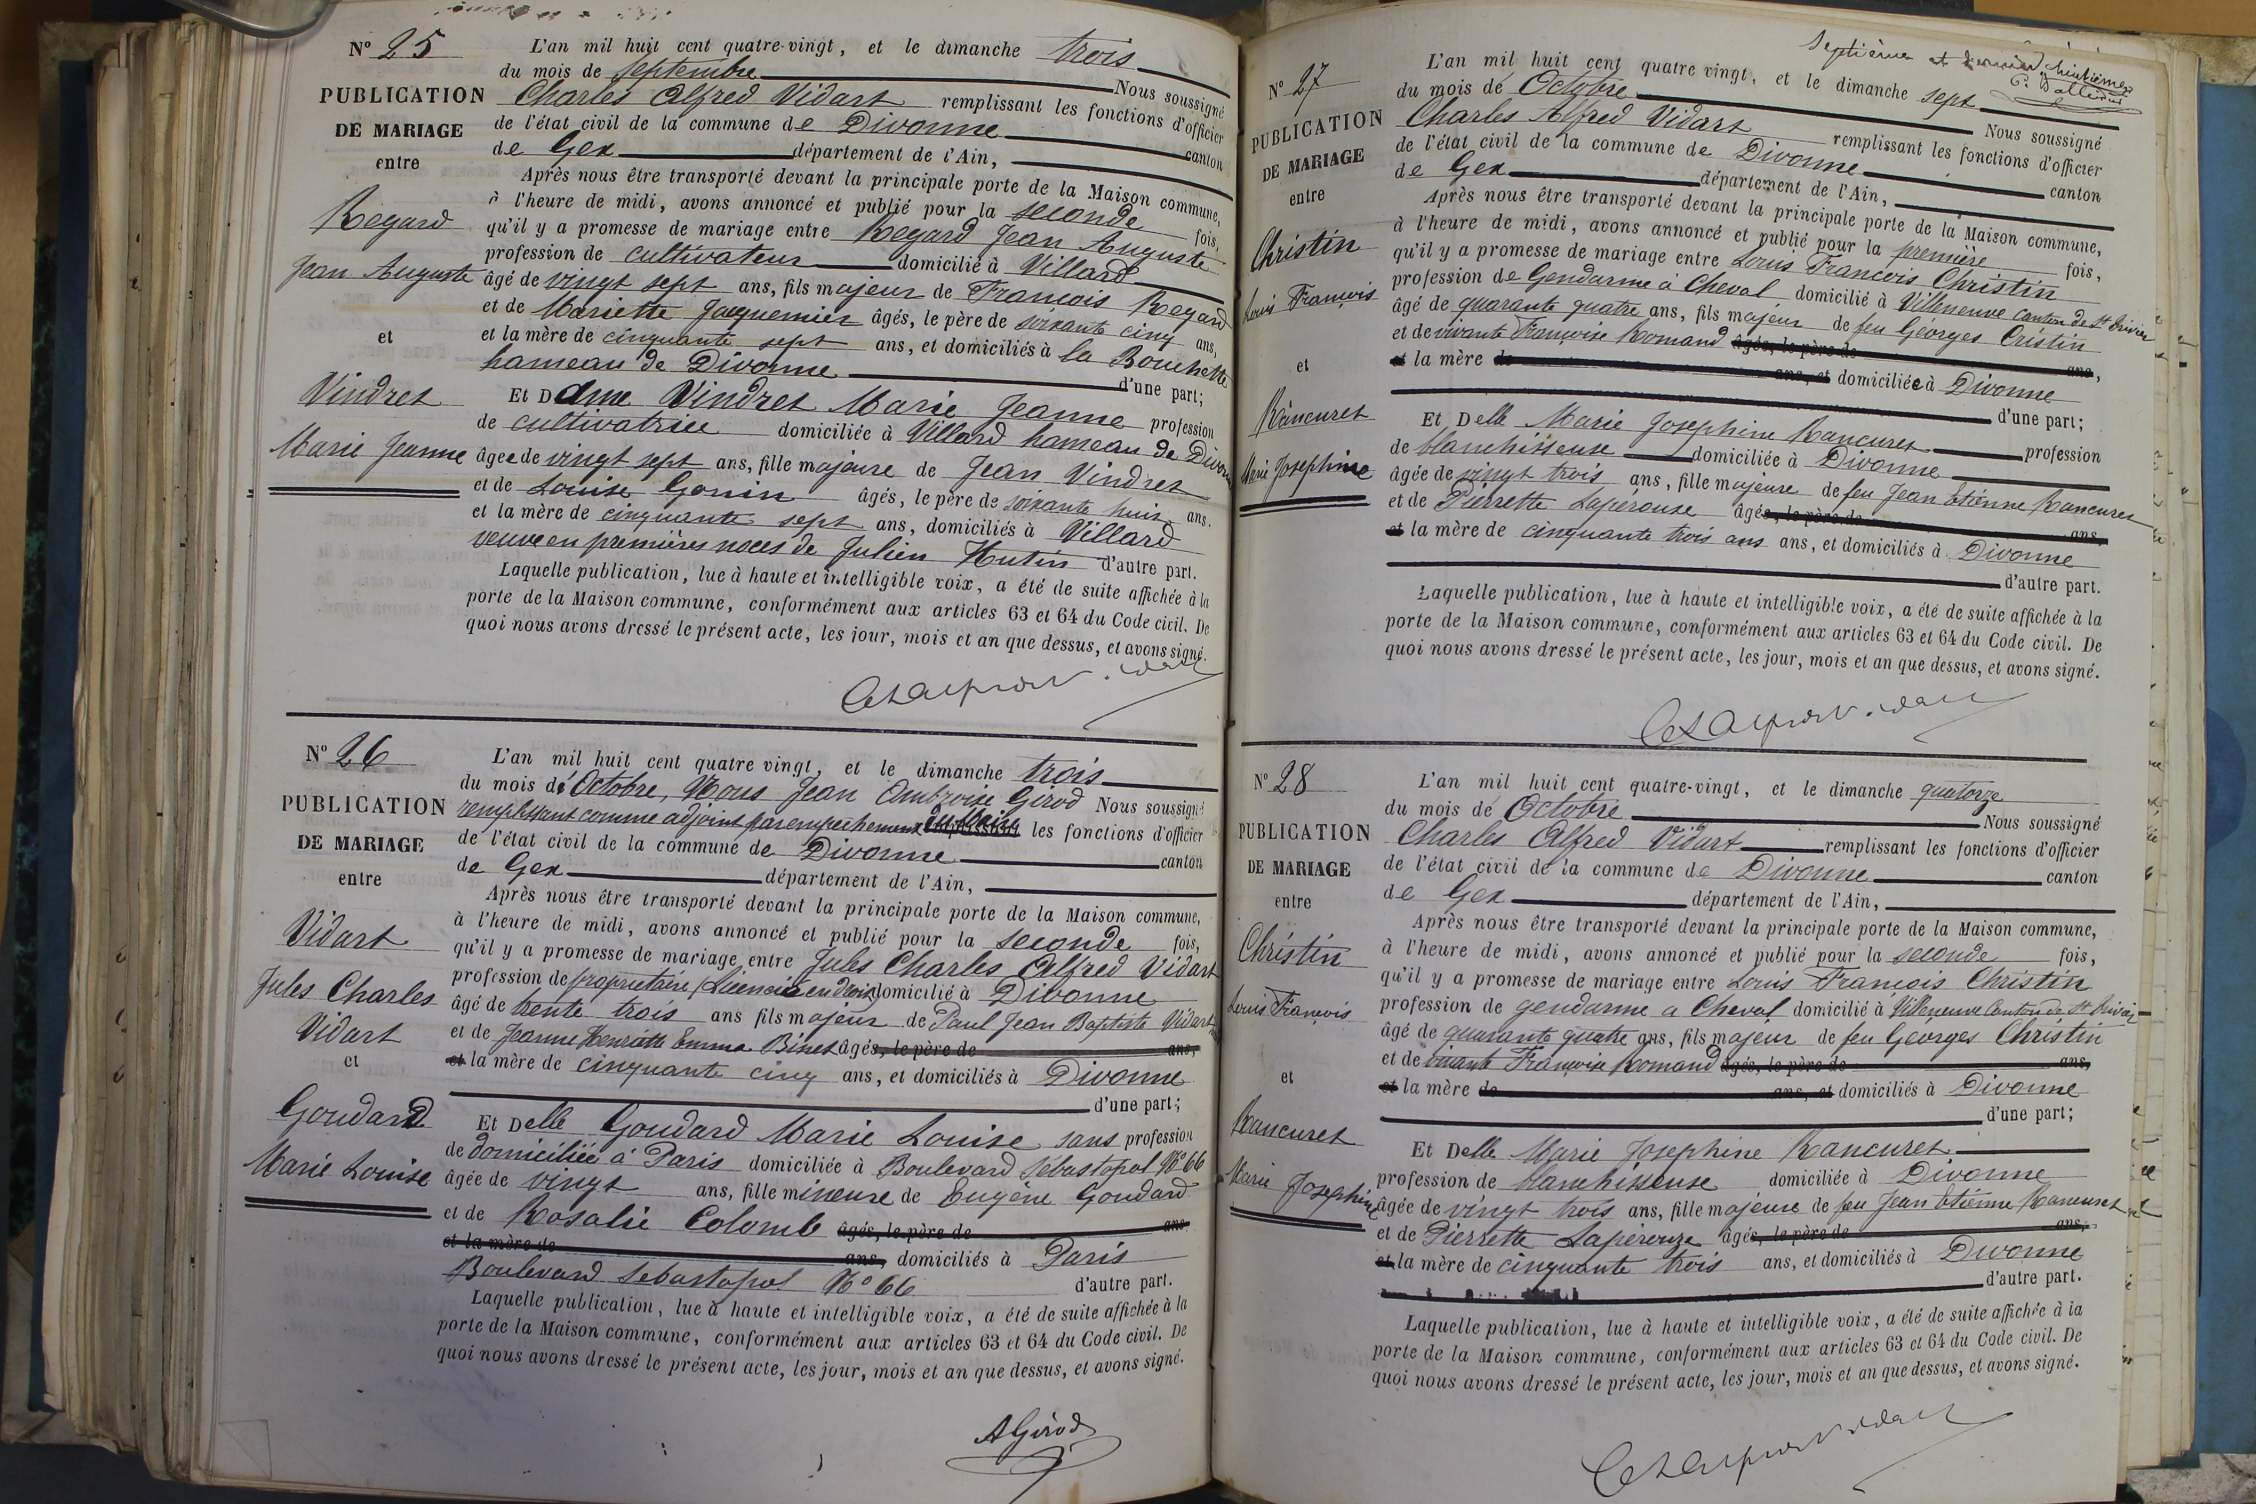 N° 25
PUBLICATION
DE MARIAGE
entre
Regard
Jean Auguste
et
Vindret
Marie Jeanne
L'an mil huit cent quatre-vingt, et le dimanche trois
du mois de septembre Nous soussigné
Charles Alfred Vidart remplissant les fonctions d'officier
de l'état civil de la commune de Divonne canton
de Gex département de l'Ain,
Après nous être transporté devant la principale porte de la Maison commune,
à l'heure de midi, avons annoncé et publié pour la seconde fois,
qu'il y a promesse de mariage entre Regard Jean Auguste
profession de cultivateur domicilié à Villard
âgé de vingt sept ans, fils majeur de François Regard
et de Mariette Jacquemier âgés, le père de soixante cinq ans,
et la mère de cinquante sept ans, et domiciliés à la Bouchette
hameau de Divonne d'une part;
Et Dame Vindret Marie Jeanne profession
de cultivatrice domiciliée à Villard hameau de Divonne
âgée de vingt sept ans, fille majeure de Jean Vindret
et de Louise Gonin âgés, le père de soixante huit ans.
et la mère de cinquante sept ans, domiciliés à Villard
veuve en premières noces de Julien Hutin d'autre part.
Laquelle publication, lue à haute et intelligible voix, a été de suite affichée à la
porte de la Maison commune, conformément aux articles 63 et 64 du Code civil. De
quoi nous avons dressé le présent acte, les jour, mois et an que dessus, et avons signé.
N° 26
PUBLICATION
DE MARIAGE
entre
Vidart
Jules Charles
Vidart
et
Goudard
Marie Louise
L'an mil huit cent quatre vingt, et le dimanche trois
du mois de Octobre, Nous Jean Ambroise Girod Nous soussigné
remplissant comme adjoint par empechement du Maire les fonctions d'officier
de l'état civil de la commune de Divonne canton
de Gex département de l'Ain,
Après nous être transporté devant la principale porte de la Maison commune,
à l'heure de midi, avons annoncé et publié pour la seconde fois,
qu'il y a promesse de mariage entre Jules Charles Alfred Vidart
profession de propriétaire, Licencié en droit domicilié à Divonne
âgé de trente trois ans fils majeur de Paul Jean Baptiste Vidart
et de Jeanne Henriette Emma Binet âgés, le père de ans,
et la mère de cinquante cinq ans, et domiciliés à Divonne
d'une part;
Et Delle Goudard Marie Louise sans profession
de domiciliée à Paris domiciliée à Boulevard Sébastopol N° 66
âgée de vingt ans, fille mineure de Eugène Goudard
et de Rosalie Colomb âgés, le père de ans
et la mère de ans, domiciliés à Paris
Boulevard Sebastopol N° 66 d'autre part.
Laquelle publication, lue à haute et intelligible voix, a été de suite affichée à la
porte de la Maison commune, conformément aux articles 63 et 64 du Code civil. De
quoi nous avons dressé le présent acte, les jour, mois et an que dessus, et avons signé.
AGirod
Septième et dernier
N° 27
PUBLICATION
DE MARIAGE
entre
Christin
Louis François
et
Rancuret
Marie Josephine
L'an mil huit cent quatre vingt, et le dimanche sept
du mois de Octobre Nous soussigné
Charles Alfred Vidart remplissant les fonctions d'officier
de l'état civil de la commune de Divonne canton
de Gex département de l'Ain,
Après nous être transporté devant la principale porte de la Maison commune,
à l'heure de midi, avons annoncé et publié pour la première fois,
qu'il y a promesse de mariage entre Louis François Christin
profession de Gendarme à Cheval domicilié à Villeneuve Canton de St Trivier
âgé de quarante quatre ans, fils majeur de feu Georges Cristin
et de vivante Françoise Romand âgés, le père de ans,
et la mère de ans, et domiciliée à Divonne
d'une part;
Et Delle Marie Josephine Rancuret profession
de blanchisseuse domiciliée à Divonne
âgée de vingt trois ans, fille majeure de feu Jean Etienne Rancuret
et de Pierrette Lapérouse âgés, le père de ans,
et la mère de cinquante trois ans ans, et domiciliés à Divonne
d'autre part.
Laquelle publication, lue à haute et intelligible voix, a été de suite affichée à la
porte de la Maison commune, conformément aux articles 63 et 64 du Code civil. De
quoi nous avons dressé le présent acte, les jour, mois et an que dessus, et avons signé.
N° 28
PUBLICATION
DE MARIAGE
entre
Christin
Louis François
et
Rancuret
Marie Josephine
L'an mil huit cent quatre-vingt, et le dimanche quatorze
du mois de Octobre Nous soussigné
Charles Alfred Vidart remplissant les fonctions d'officier
de l'état civil de la commune de Divonne canton
de Gex département de l'Ain,
Après nous être transporté devant la principale porte de la Maison commune,
à l'heure de midi, avons annoncé et publié pour la seconde fois,
qu'il y a promesse de mariage entre Louis François Christin
profession de gendarme a Cheval domicilié à Villeneuve Canton de St Trivier
âgé de quarante quatre ans, fils majeur de feu Georges Christin
et de vivante Françoise Romand âgés, le père de ans,
et la mère de ans, et domiciliés à Divonne
d'une part;
Et Delle Marie Josephine Rancuret
profession de blanchisseuse domiciliée à Divonne
âgée de vingt trois ans, fille majeure de feu Jean Etienne Rancuret
et de Pierrette Lapérouze âgés, le père de ans,
et la mère de cinquante trois ans, et domiciliés à Divonne
d'autre part.
Laquelle publication, lue à haute et intelligible voix, a été de suite affichée à la
porte de la Maison commune, conformément aux articles 63 et 64 du Code civil. De
quoi nous avons dressé le présent acte, les jour, mois et an que dessus, et avons signé.